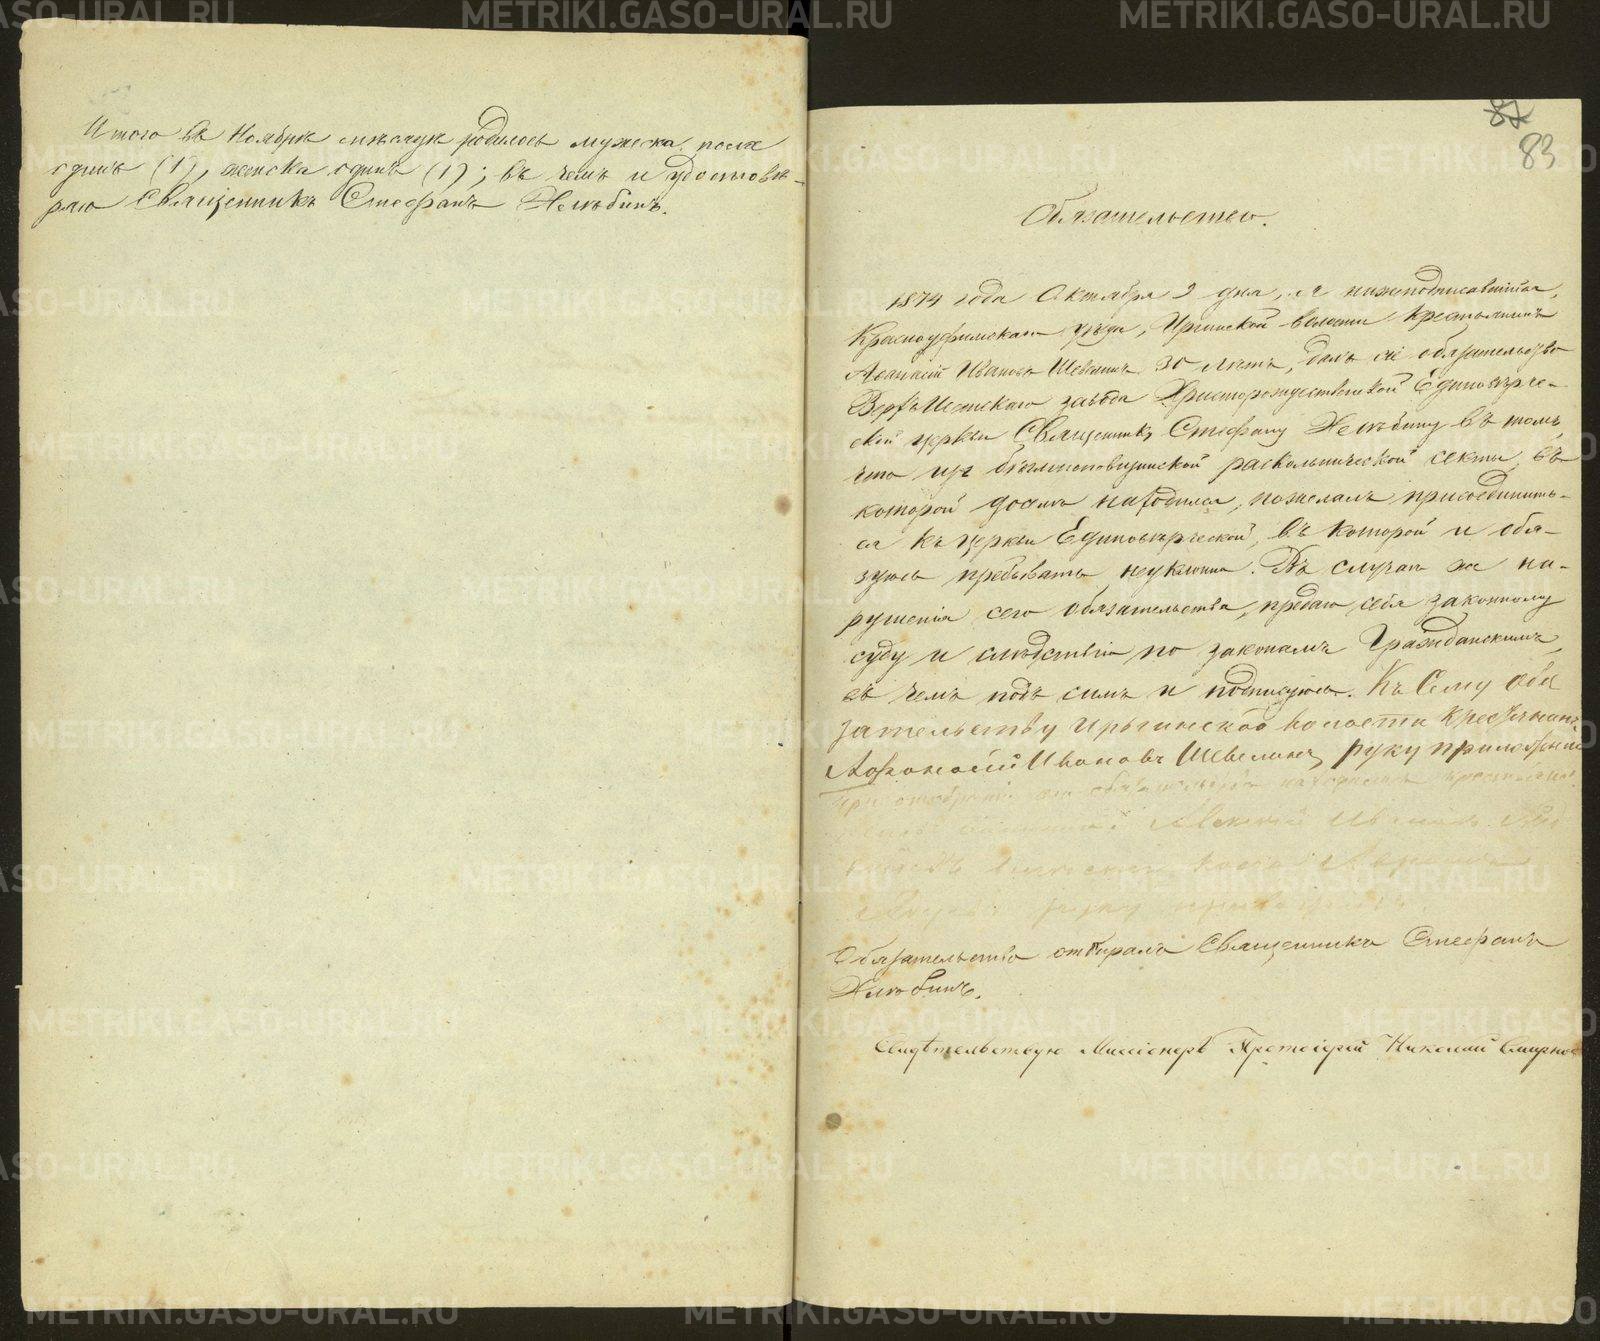 Итого въ Ноябрѣ мѣсяцѣ родилось мужеска пола
одинъ (1), женска одинъ (1); въ чемъ и удостовѣ-
ряю Священникъ Стефанъ Хлѣбинъ.
87
83
Обязательство.
1874 года Октября 9 дня, я нижеподписавшійся,
Красноуфимскаго уѣзда, Иргинской волости крестьянинъ
Иванъ Шевелинъ 30 лѣтъ, далъ сіе обязательство
Верхъ Исетскаго завода Христорождественской Единовѣрче-
ской церкви Священнику Стефану Хлѣбину въ томъ,
что изъ бѣглопоповщинской раскольнической секты, въ
которой доселѣ находился, пожелалъ присоединить-
ся къ церкви Единовѣрческой, въ которой и обя-
зуюсь пребывать неуклонно. Въ случаѣ же на-
рушенія сего обязательства, предаю себя законному
суду и слѣдствію по законамъ Гражданскимъ,
въ чемъ подъ симъ и подписуюсь. Къ Сему Обя
зательству Иргинской волости Крестьянинъ
Афонасій Ивановъ Шевелинъ руку приложилъ
при обязательства находился
Алексѣй Ивановъ
волости
руку приложилъ
Обязательство отбиралъ Священникъ Стефанъ
Хлѣбинъ.
Свидѣтельствую Миссіонеръ Протоіерей Николай Смирнов
METRIKI.GASO-URAL.RU